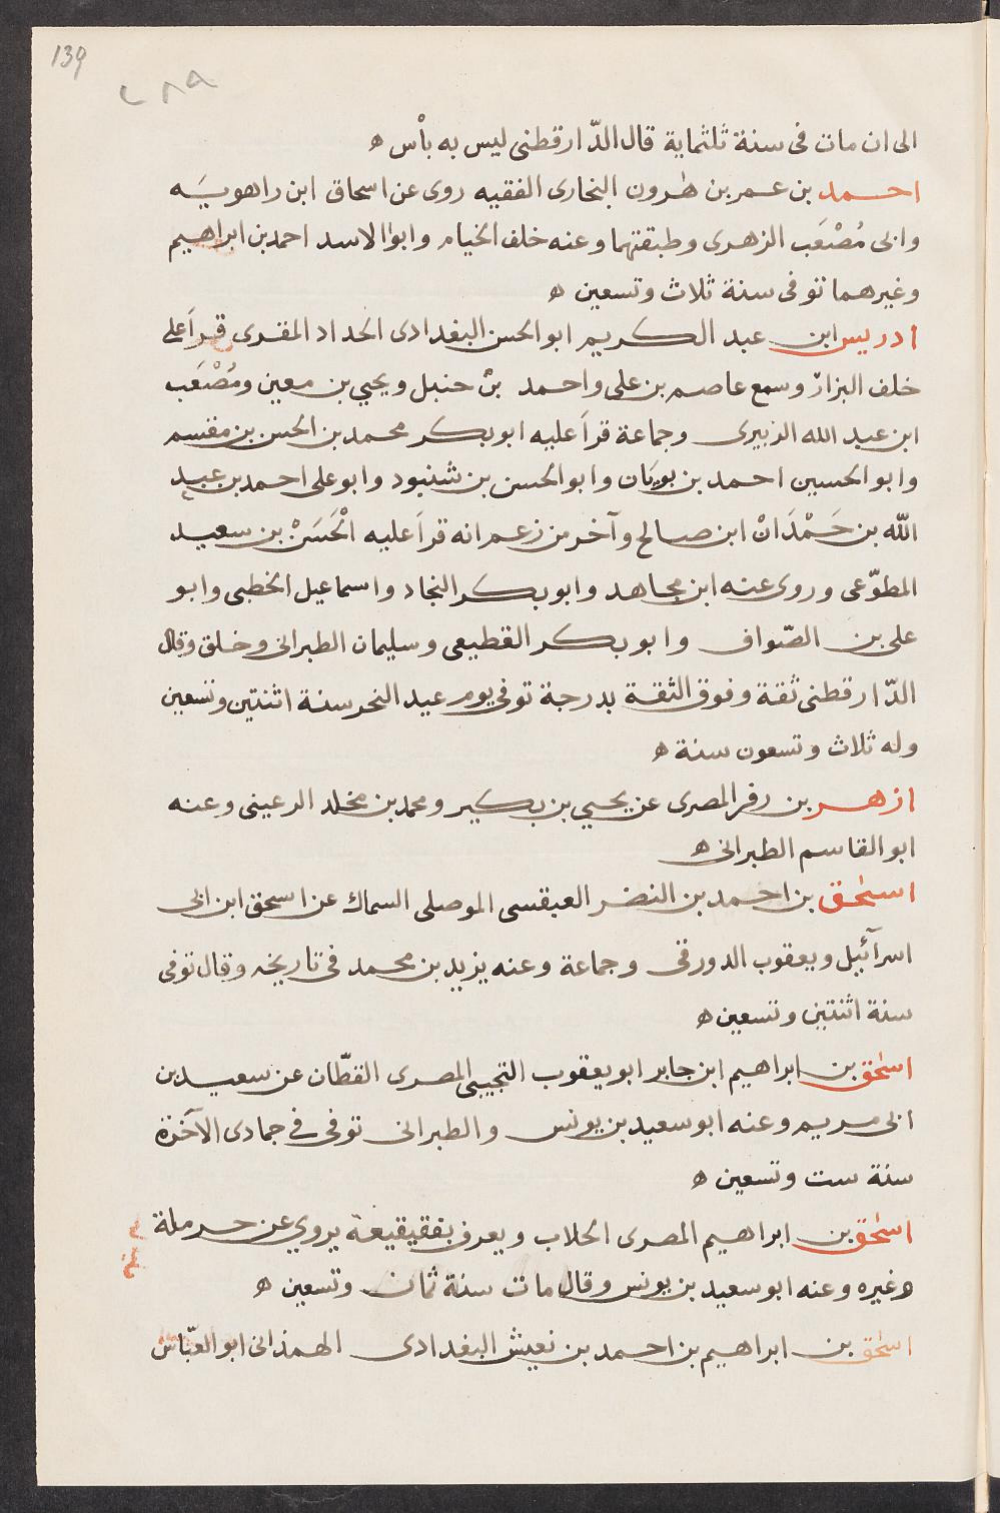 139
٢٨٩
الى ان مات فى سنة ثلثماية قال الدّارقطنى ليس به بأس ه
احمد بن عمر بن هٰرون البخارى الفقيه روى عن اسحاق ابن راهويَه
وابى مُصْعَب الزهرى وطبقتهما وعنه خلف الخيام وابوا الاسد احمد بن ابراهيم
وغيرهما توفى سنة ثلاث وتسعين ه
ادريس ابن عبد الكريم ابو الحسن البغدادى الحداد المقرى قرأ على
خلف البزار وسمع عاصم بن على واحمد بن حنبل ويحيي بن معين ومُصْعَب
ابن عبد الله الزبيرى وجماعة قرأ عليه ابو بكر محمد بن الحسن بن مقسم
وابو الحسين احمد بن بويَان وابو الحسن بن شنبود وابو على احمد بن عبيد
الله بن حَمْدَانْ ابن صالح وآخر من زعم انه قرأ عليه الْحَسَنْ بن سعيد
المطوّعى وروى عنه ابن مجاهد وابو بكر النجاد واسماعيل الخطبى وابو
على بن الصّواف وابو بكر القطيعى وسليمان الطبرانى وخلق وقال
الدّارقطنى ثقة وفوق الثقة بدرجة توفى يوم عيد النحر سنة اثنتين وتسعين
وله ثلاث وتسعون سنة ه
ازهر بن زفر المصرى عن يحيي بن بكير ومحمد بن مخلد الرعينى وعنه
ابو القاسم الطبرانى ه
اسحٰق بن احمد بن النضر العبقسى الموصلى السماك عن اسحق ابن ابى
اسرآئيل ويعقوب الدورقى وجماعة وعنه يزيد بن محمد فى تاريخه وقال توفى
سنة اثنتين وتسعين ه
اسحٰق بن ابراهيم ابن جابر ابو يعقوب التجيبى المصرى القطّان عن سعيد بن
ابى مريم وعنه ابو سعيد بن يونس والطبرانى توفى فى جمادى الآخرة
سنة ست وتسعين ه
اسحٰق بن ابراهيم المصرى الجلاب ويعرف بفقيقيعة يروي عن حرملة
وغيره وعنه ابو سعيد بن يونس وقال مات سنة ثمان وتسعين ه
اسحٰق بن ابراهيم بن احمد بن نعيش البغدادى الهمذانى ابو العبّاس